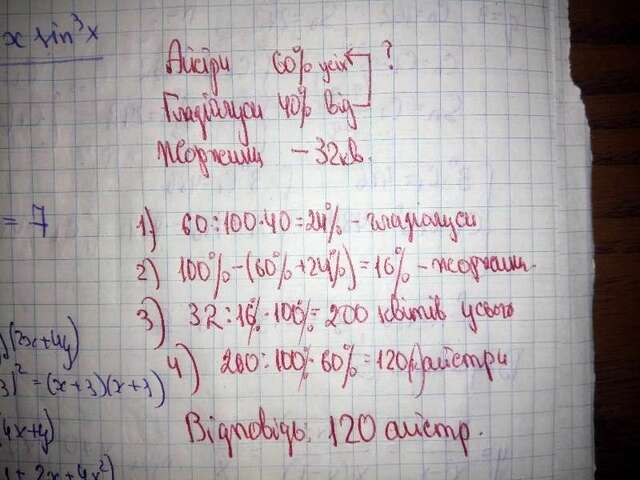 x sin³x
Айстри 60% усіх ?
Гладіолуси 40% від
Жоржини – 32 кв.
= 7
1) 60:100·40=24% – гладіолуси
2) 100%–(60%+24%)=16% – жоржини.
3) 32:16%·100%=200 квітів усього
4) 200:100%·60%=120(к)айстри
)(2x+4y)
3)²=(x+3)(x+3)
4x+y)
Відповідь: 120 айстр.
1+2x+4x²)